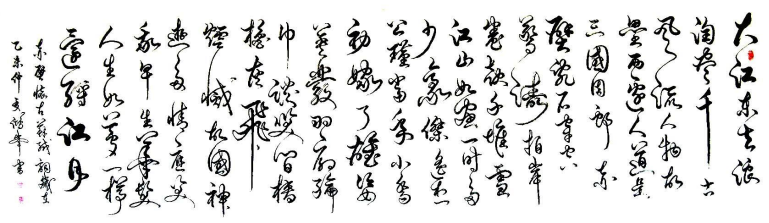 大江东去浪
淘尽千古
风流人物故
垒西邊人道是
三國周郎赤
壁乱石穿空
驚濤拍岸
卷起千堆雪
江山如画一时多
少豪傑遥想
公瑾当年小乔
初嫁了雄姿
英發羽扇纶
巾谈笑间樯
橹灰飛
煙滅故國神
遊多情应笑
我早生华髮
人生如夢一樽
還酹江月
赤壁怀古蘇軾詞歲在
乙未仲夏 書